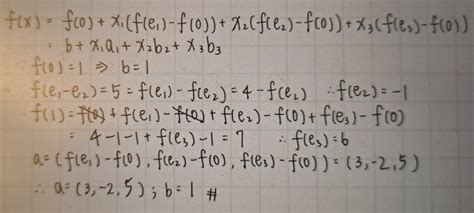 f(x) = f(0) + x₁(f(e₁)-f(0)) + x₂(f(e₂)-f(0)) + x₃(f(e₃)-f(0))
= b + x₁a₁ + x₂b₂ + x₃b₃
∵ f(0)=1 ⇒ b=1
f(e₁-e₂)=5 = f(e₁)-f(e₂) = 4-f(e₂) ∴ f(e₂)=-1
f(1)= f(0) + f(e₁)-f(0) + f(e₂)-f(0) + f(e₃)-f(0)
= 4-1-1+f(e₃)-1 = 7 ∴ f(e₃)=6
a=(f(e₁)-f(0), f(e₂)-f(0), f(e₃)-f(0)) = (3,-2,5)
∴ a=(3,-2,5) ; b=1 #